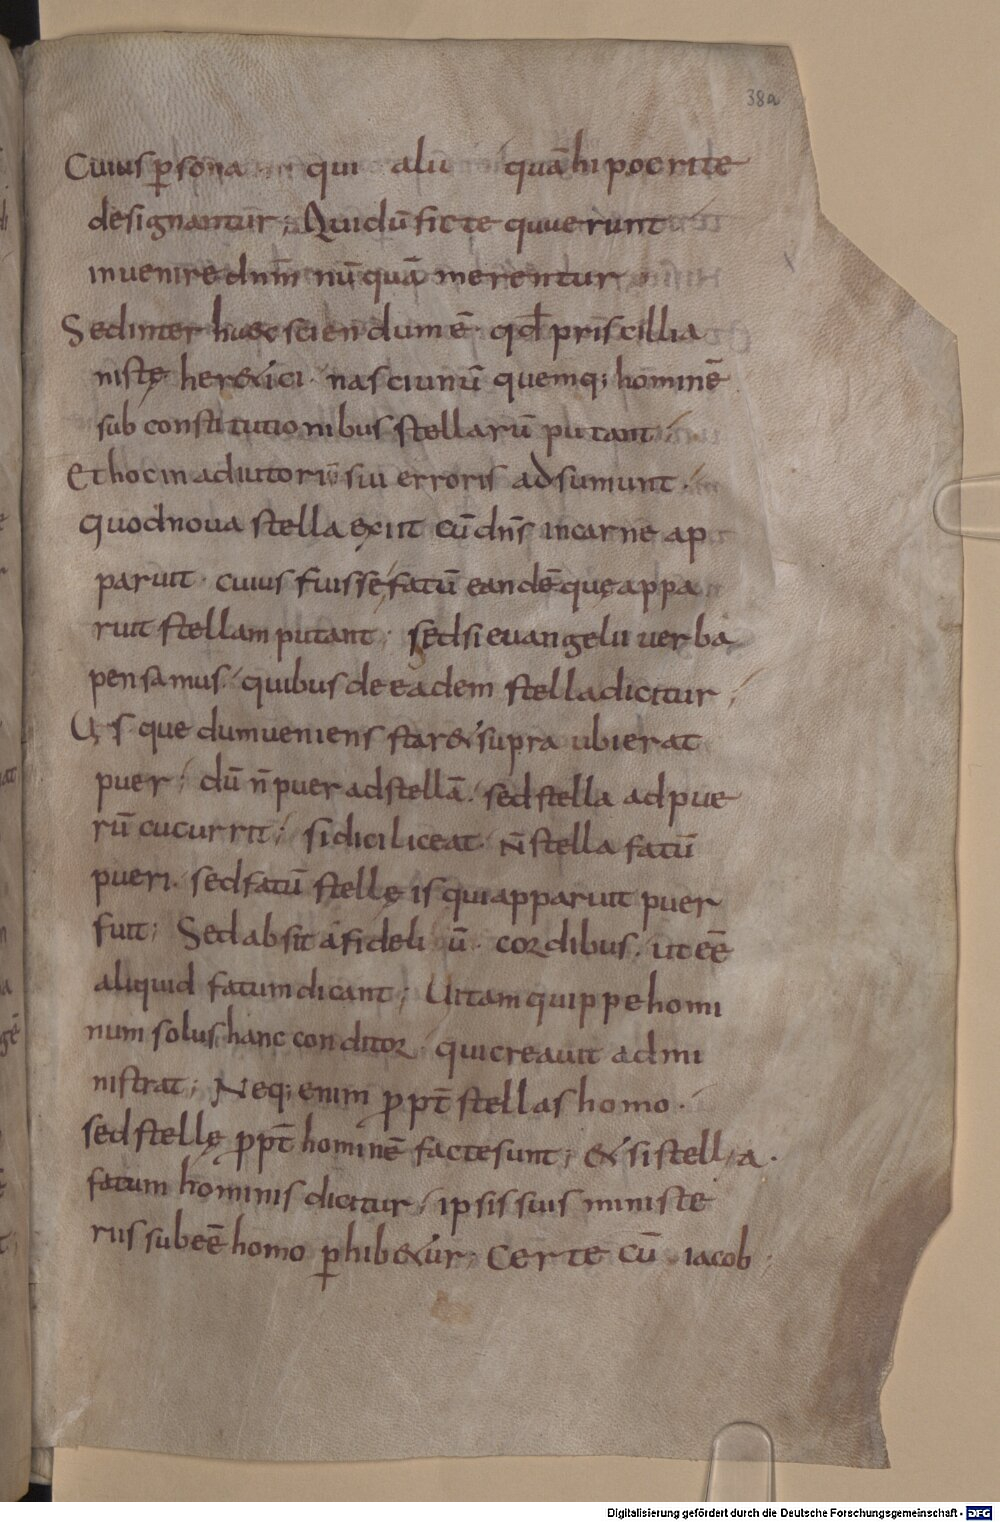 38a
Cuius ꝑsona qui alii quā hipocrite
designantur; Qui dū ficte querunt
inuenire dnm̄ nūquā merentur
Sed inter hæc sciendum ē qđ priscillia
nistę her&ici nasci unū quemq; hominē
sub constitutionibus stellarū putant;
Et hoc in adiutoriū sui erroris adsumunt.
quod noua stella exiit cū dn̄s in carne ap
paruit. cuius fuisse fatū eandē quę appa
ruit stellam putant; sed si euangelii uerba
pensamus. quibus de eadem stella dicitur;
Usque dum ueniens star& supra ubi erat
puer; dū n̄ puer ad stellā. sed stella ad pue
rū cucurrit; si dici liceat n̄ stella fatū
pueri. sed fatū stellę is qui apparuit puer
fuit; Sed absit a fideliū. cordibus. ut eē
aliquid fatum dicant; Uitam quippe homi
num solus hanc conditor. qui creauit admi
nistrat; Neq; enim ꝓpt̄ stellas homo.
sed stellę ꝓpt̄ hominē facte sunt; & si stella.
fatum hominis dicitur. ipsis suis ministe
riis subeē homo ꝑhib&ur; Certe cū iacob
Digitalisierung gefördert durch die Deutsche Forschungsgemeinschaft - DFG